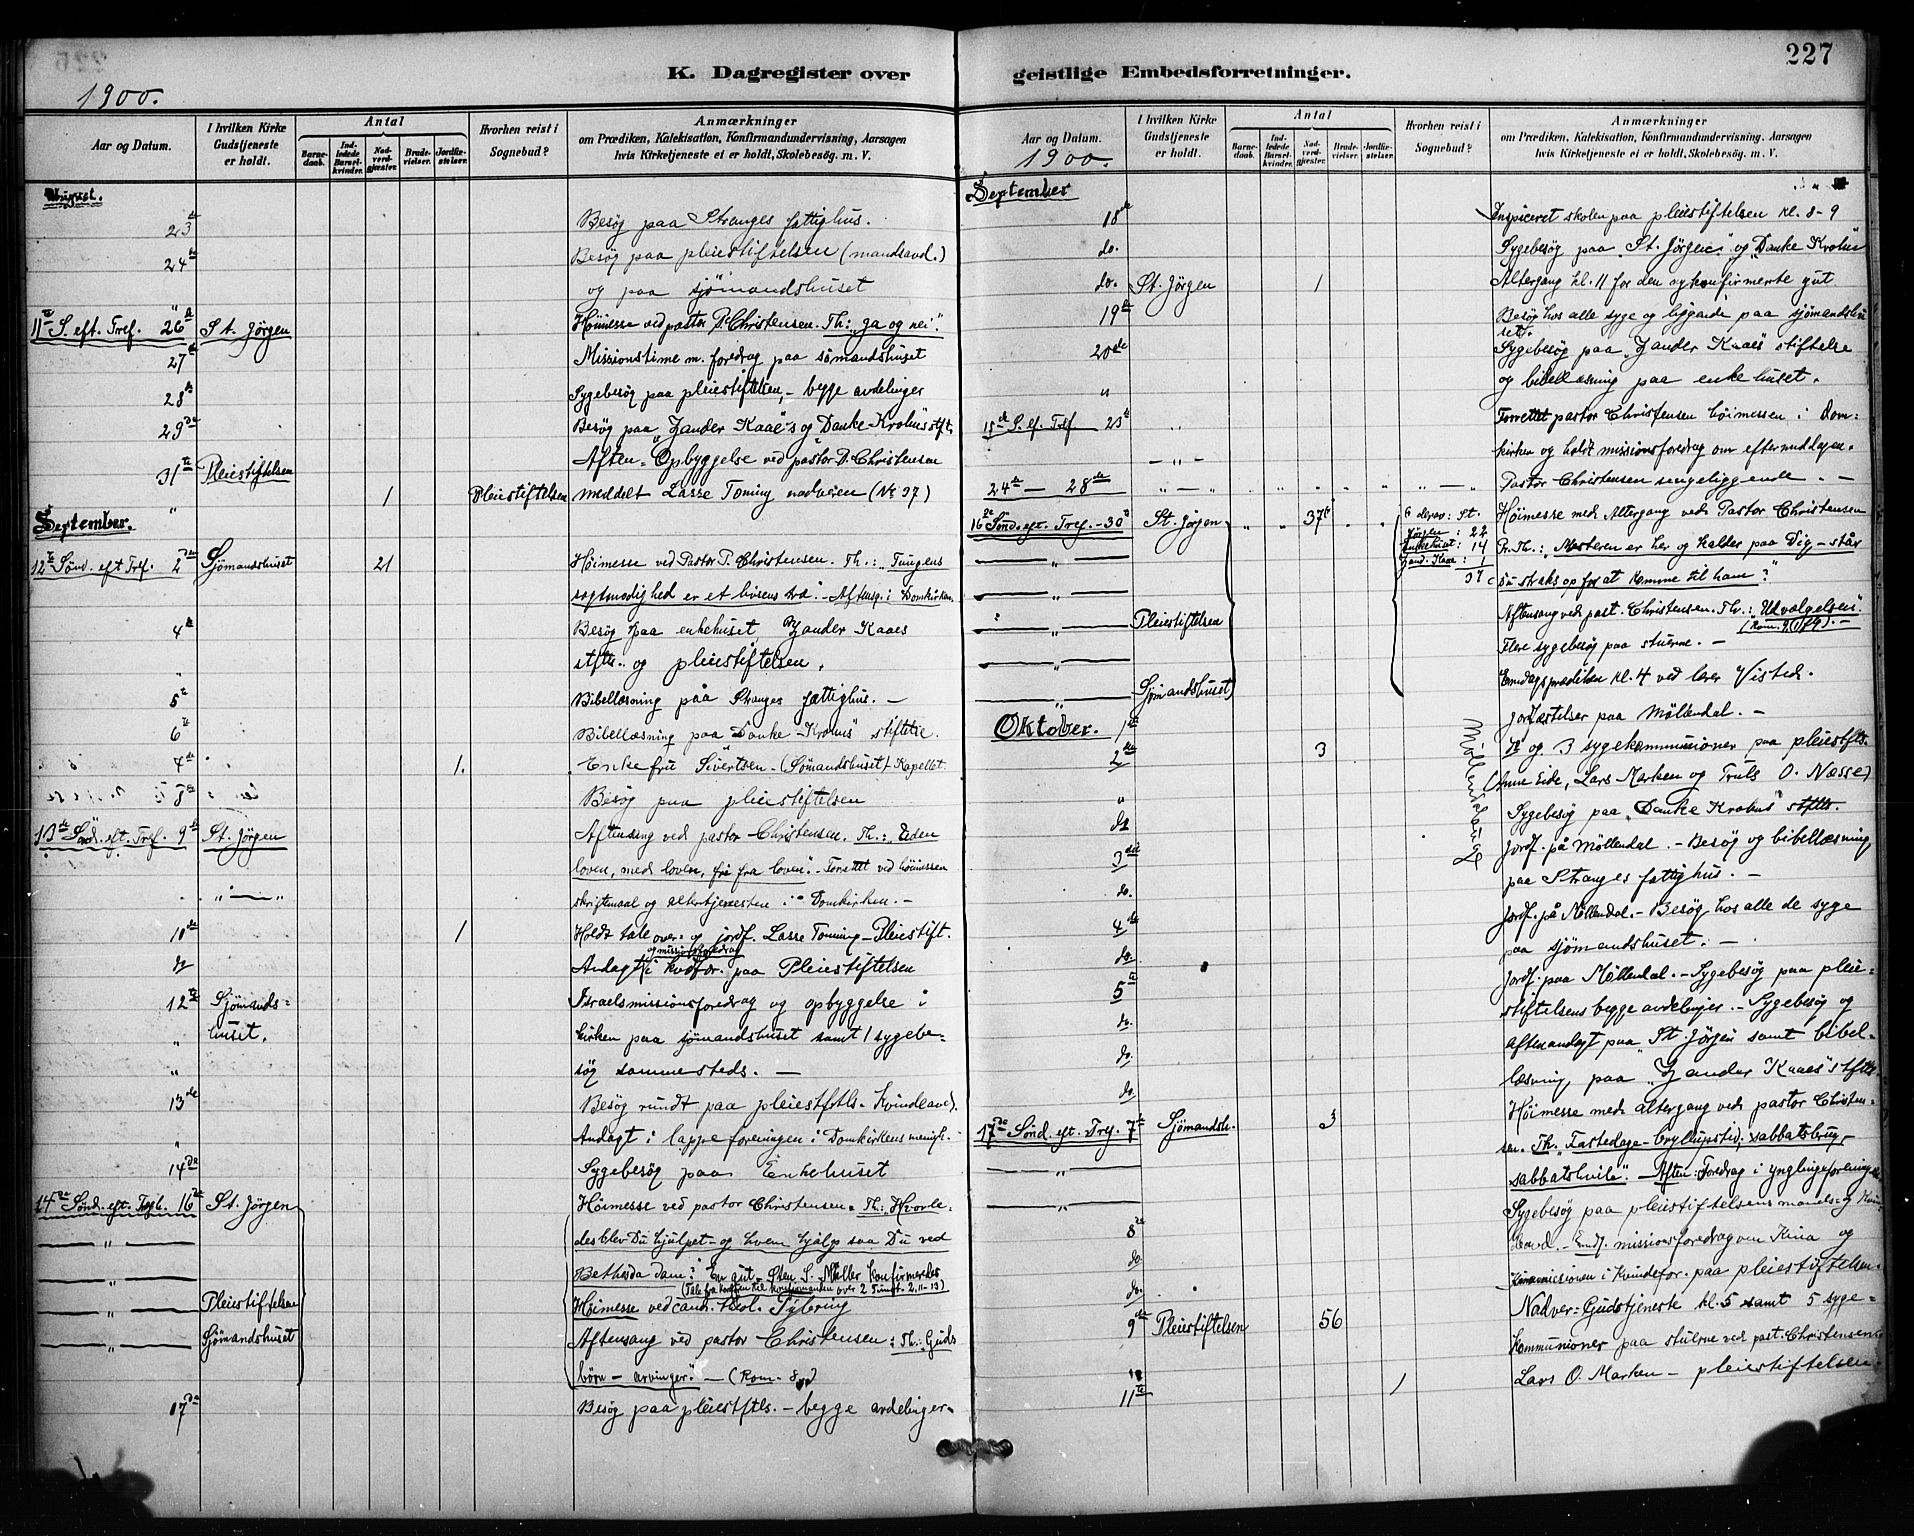 K. Dagregister over
1900.
Aar og Datum.
I hvilken Kirke Gudstjeneste er holdt.
Antal
Barnedaab.
Indledede Barselkvinder.
Nadverdgjester.
Brudevielser.
Jordfæstelser.
Hvorhen reist i Sognebud?
Anmærkninger
om Prædiken, Katekisation, Konfirmandundervisning, Aarsagen
hvis Kirketjeneste ei er holdt, Skolebesög. m. V.
August.
23de Besög paa Stranges fattighus.
24de Besög paa pleiestiftelsen (mandsavd.)
" og paa sjömandshuset
11te S. eft. Tref. 26de St. Jörgen Höimesse ved pastor P. Christensen. Th: "ja og nei".
27de Missionstime m. foredrag paa sömandshuset
28de Sygebesög paa pleiestiftelsen, - begge avdelinger
29de Besög paa "Zander Kaaes og Danke-Krohns stft.
31te Pleiestiftelsen Aften-Opbyggelse ved pastor P. Christensen
" 1 Pleiestiftelsen meddelt Lasse Toning nadveren (No 37)
September.
12te Sönd. eft Tref. 2den Sjömandshuset 21 Höimesse ved Pastor P. Christensen. Th.: "Tungens
sagtmodighed er et livsens træ". - Aftensg. i Domkirken.
4de Besög paa enkehuset, Zander Kaaes
" stft. og pleiestiftelsen.
5te Bibellæsning paa Stranges fattighus. -
6te Bibellæsning paa Danke-Krohns stiftelse.
4de 1. Enkefru Sivertsen - (Sömandshuset) Kapellet.
8de Besög paa pleiestiftelsen
13de Sönd. eft. Tref. 9de St. Jörgen Aftensang ved pastor Christensen. Th.: "Uden
loven, med loven, fri fra loven". - Forrettet ved höimessen
skriftemaal og altertjenesten i Domkirken. -
10de 1 Holdt tale over- og jordf. Lasse Toning - Pleiestift.
og missionsforedrag
do Andagt i kvdfor. paa Pleiestiftelsen
12te Sjömandshuset. Israelsmissionsforedrag og opbyggelse i
" kirken paa sjömandshuset samt 1 sygebe-
" sög sammesteds. -
13de Besög rundt paa pleiestftls. Kvindeavd.
" Andagt i lappeforeningen i Domkirkens menigh.
14de Sygebesög paa Enkehuset
14de Sönd. eft. Trefh. 16de St. Jörgen Höimesse ved pastor Christensen. Th: "Hvorle-
des blev Du hjulpet - og hvem hjalp saa Du ved
Bethesda dam? En gut - Sten S. Möller konfirmeredes
(Tale fra kordøren til konfirmanden over 2 Timot. 2, 11-13)
Pleiestiftelsen Höimesse ved cand. theol.
Sjömandshuset Aftensang ved pastor Christensen: Th: "Guds
börn - arvinger". - (Rom. 8)
17de Besög paa pleiestftls. - begge avdelinger.
geistlige Embedsforretninger.
227
Aar og Datum.
1900.
I hvilken Kirke Gudstjeneste er holdt.
Antal
Barnedaab.
Indledede Barselkvinder.
Nadverdgjester.
Brudevielser.
Jordfæstelser.
Hvorhen reist i Sognebud?
Anmærkninger
om Prædiken, Katekisation, Konfirmandundervisning, Aarsagen
hvis Kirketjeneste ei er holdt, Skolebesög. m. V.
September
18de Inspiceret skolen paa pleiestiftelsen kl. 8-9
do. Sygebesög paa "St. Jörgen" og "Danke Krohn"
do. St. Jörgen 1 Altergang kl. 11 for den nykonfirmerte gut
19de Besög hos alle syge og liggende paa sjömandshu
set.
20de Sygebesög paa "Zander Kaaes" stiftelse
" og bibellæsning paa enkehuset.
15de S. ef. Tref 23de Forrettet pastor Christensen höimessen i Dom-
kirken og holdt missionsforedrag om eftermiddagen.
24de - 28de Pastor Christensen sengeliggende. -
16de Sönd. eft. Tref. - 30te St. Jörgen 37 deraf: St. Jörgen: 22 Enkehuset: 14 Zand. Kaae: 1 37 Höimesse med Altergang ved Pastor Christensen
Pr. Th.: "Mesteren er her og kalder paa Dig - står
du straks op for at komme til ham?"
Pleiestiftelsen Aftensang ved past. Christensen. Th.: "Udvælgelsen".
Flere sygebesög paa stuerne. -
Sjömandshuset Emdagsprædiken kl. 4 ved lærer Visted.
Oktober. 1ste Jordfæstelser paa Möllendal. -
2den 3 do og 3 sygekommunioner paa pleiestfts.
(Anne Eide, Lars Marken og Truls O. Næsse)
do Sygebesög paa "Danke Krohns" stftls.
3die Jordf. på Möllendal. - Besög og bibellæsning
do. paa Stranges fattighus. -
4de Jordf. på Möllendal. - Besög hos alle de syge
do. paa sjömandshuset. -
5te Jordf. paa Möllendal. - Sygebesög paa pleie-
do. stiftelsens begge avdelinger. - Sygebesög og
do. aftenandagt paa St. Jörgen samt bibel-
do. læsning, paa "Zander Kaaes" stftls.
17de Sönd. eft. Tref. 7de Sjömandsh. 3 Höimesse med altergang ved pastor Christen-
sen. Th. "Fastedage - bryllupstid, sabbatsbrug -
sabbatshvile". - Aften: Foredrag i ynglingeforeningen
8de Sygebesög paa pleiestiftelsens mands- og kvin-
do. deavd. - Emdg. missionsforedrag om Kina og
do. Kinamissionen i kvindefor. paa pleiestiftelsen.
9de Pleiestiftelsen 56 Nadver-Gudstjeneste kl. 5 samt 5 syge-
kommunioner paa stuerne ved past. Christensen.
11te 1 Lars O. Marken - pleiestiftelsen.